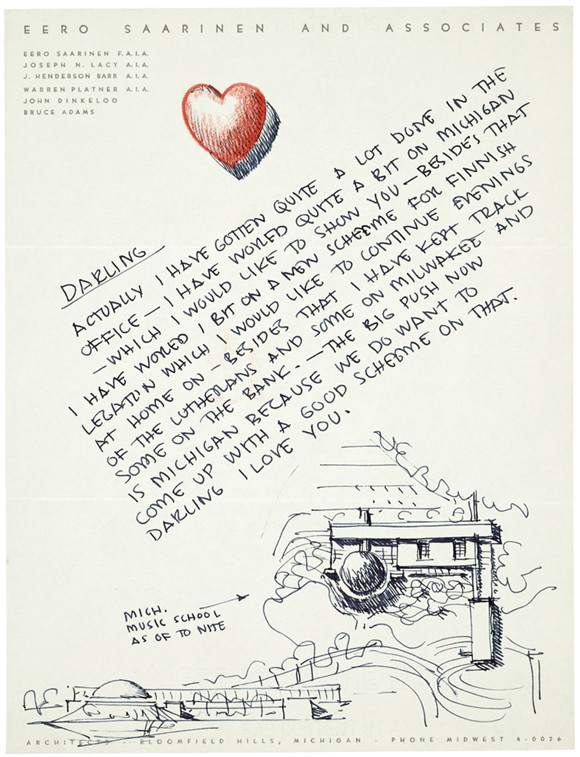 EERO SAARINEN AND ASSOCIATES
EERO SAARINEN F.A.I.A.
JOSEPH N. LACY A.I.A.
J. HENDERSON BARR A.I.A.
WARREN PLATNER A.I.A.
JOHN DINKELOO
BRUCE ADAMS
DARLING
ACTUALLY I HAVE GOTTEN QUITE A LOT DONE IN THE
OFFICE — I HAVE WORKED QUITE A BIT ON MICHIGAN
— WHICH I WOULD LIKE TO SHOW YOU — BESIDES THAT
I HAVE WORKED 1 BIT ON A NEW SCHEME FOR FINNISH
LEGATION WHICH I WOULD LIKE TO CONTINUE EVENINGS
AT HOME ON — BESIDES THAT I HAVE KEPT TRACK
OF THE LUTHERANS AND SOME ON MILWAKEE AND
SOME ON THE BANK. — THE BIG PUSH NOW
IS MICHIGAN BECAUSE WE DO WANT TO
COME UP WITH A GOOD SCHEEME ON THAT.
DARLING I LOVE YOU.
MICH.
MUSIC SCHOOL
AS OF TO NITE
ARCHITECTS · BLOOMFIELD HILLS, MICHIGAN · PHONE MIDWEST 4-0026